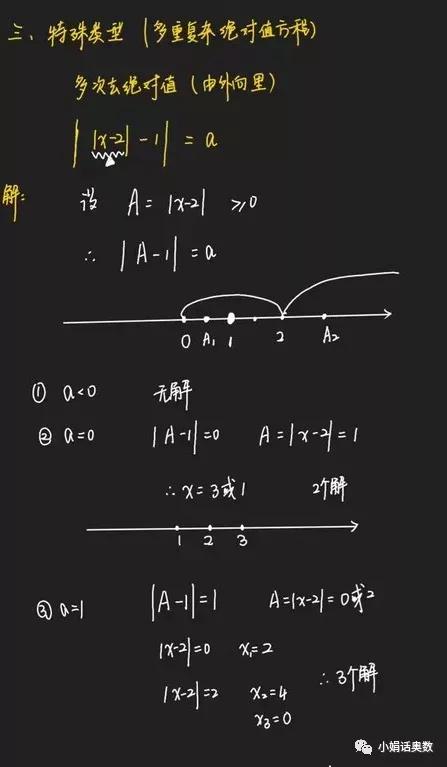 三、特殊类型(多重复杂绝对值方程)
多次去绝对值(由外向里)
| |x-2| -1 | = a
解:
设 A = |x-2| ≥0
∴ |A-1| = a
0 A₁ 1 2 A₂
① a<0 无解
② a=0 |A-1|=0 A=|x-2|=1
∴ x=3或1 2个解
1 2 3
③ a=1 |A-1|=1 A=|x-2|=0或2
|x-2|=0 x₁=2
|x-2|=2 x₂=4 ∴ 3个解
x₃=0
小娟话奥数